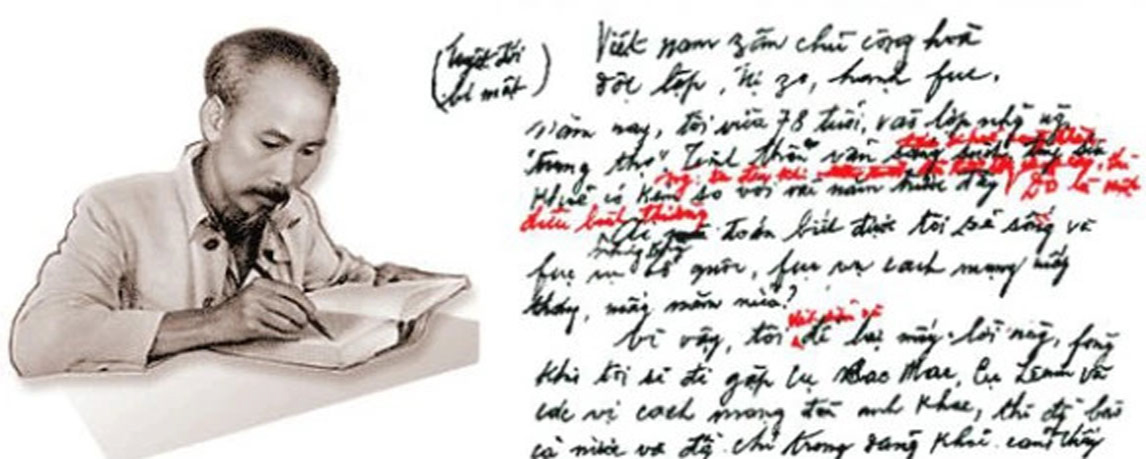 (Tuyệt đối
bí mật)
Việt nam zân chủ cộng hoà
độc lập, tự zo, hạnh fúc.
Năm nay, tôi vừa 78 tuổi, vào lớp những
"trung thọ". Tinh thần vẫn sáng suốt
khoẻ có kém so với vài năm trước đây Đó là một
điều bình thường
Ai đoán biết được tôi sẽ sống và
fục vụ tổ quốc, fục vụ cách mạng mấy
tháng, mấy năm nữa?
Vì vậy, tôi để lại mấy lời này, fòng
khi tôi sẽ đi gặp Cụ Các Mac, Cụ Lênin và
các vị cách mạng đàn anh khác, thì đ bào
cả nước và đ chí trong đảng khỏi cảm thấy